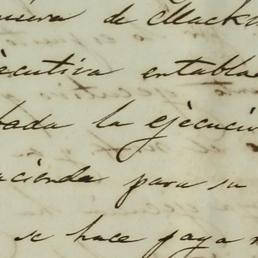 de Mack
ecutiva entabla
bada la ejecuci
acienda para su
se hace pago